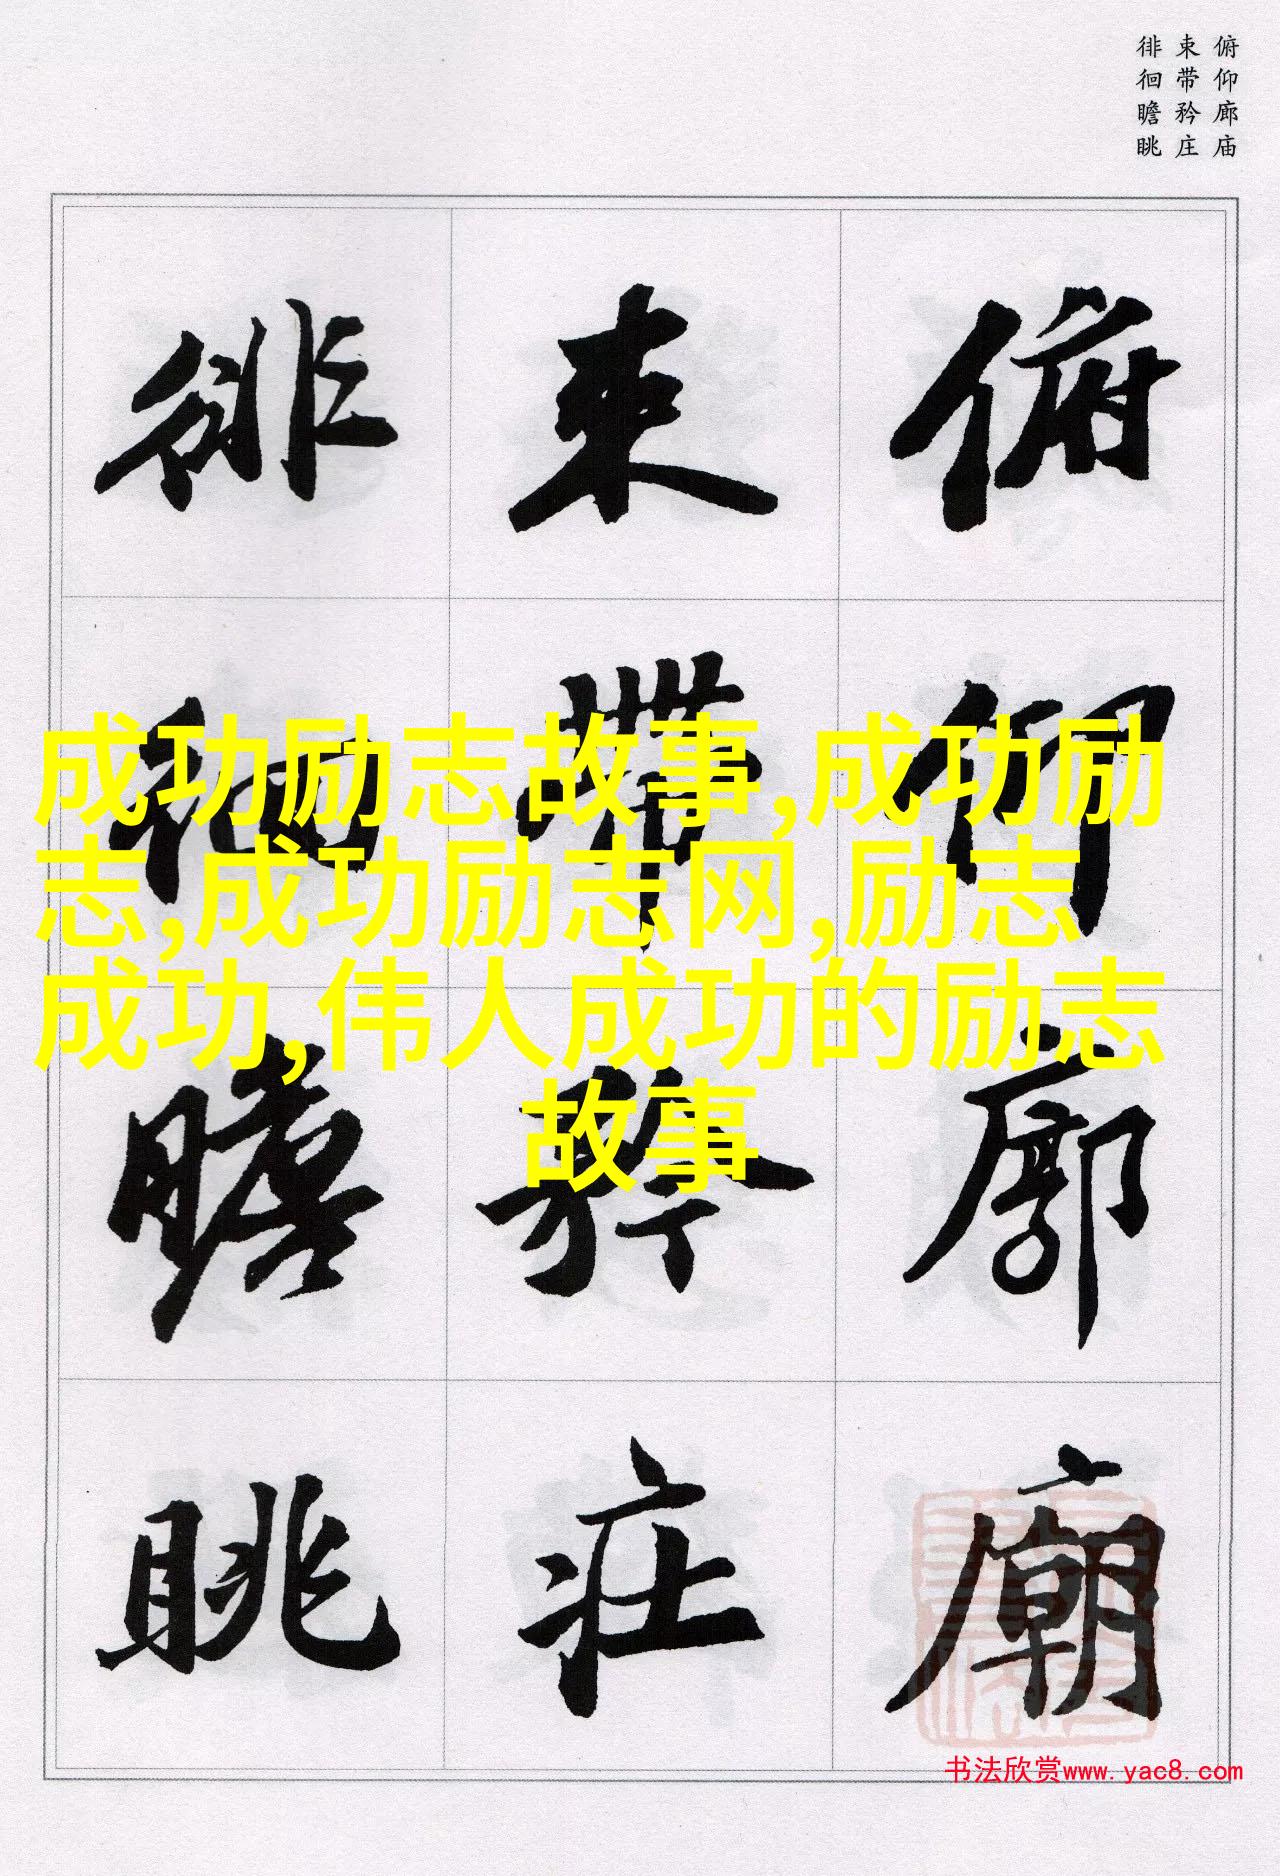 俯仰廊庙
束带矜庄
徘徊瞻眺
俯仰廊廟
束帶矜莊
徘徊瞻眺
成功励志故事,成功励
志,成功励志网,励志
成功,伟人成功的励志
故事
书法欣赏www.yac8.com